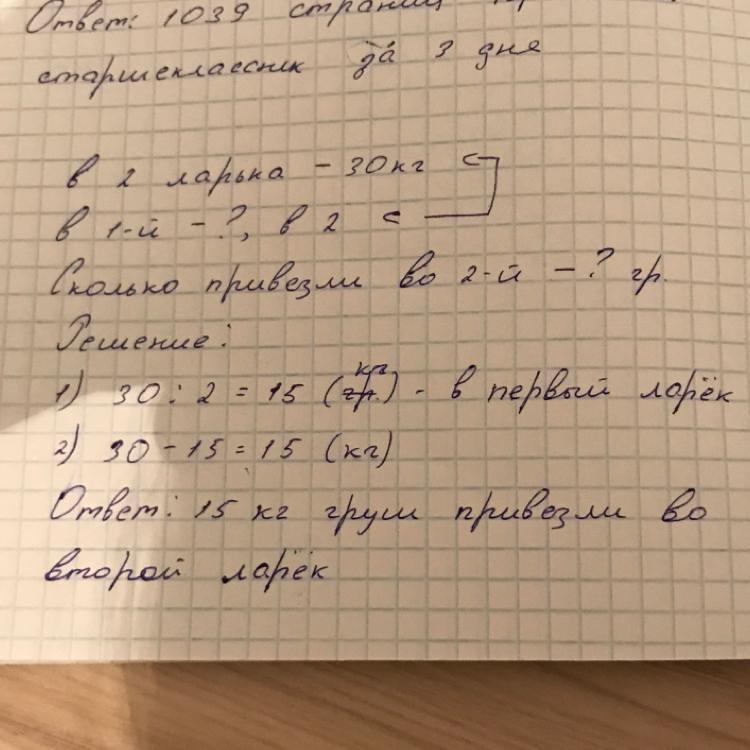 Ответ: 1039 страниц
старшеклассник за 3 дня
в 2 ларька - 30кг
в 1-й - ?, в 2
Сколько привезли во 2-й - ? гр.
Решение:
1) 30 : 2 = 15 (кг) - в первый ларёк
2) 30 - 15 = 15 (кг)
Ответ: 15 кг груш привезли во
второй ларёк